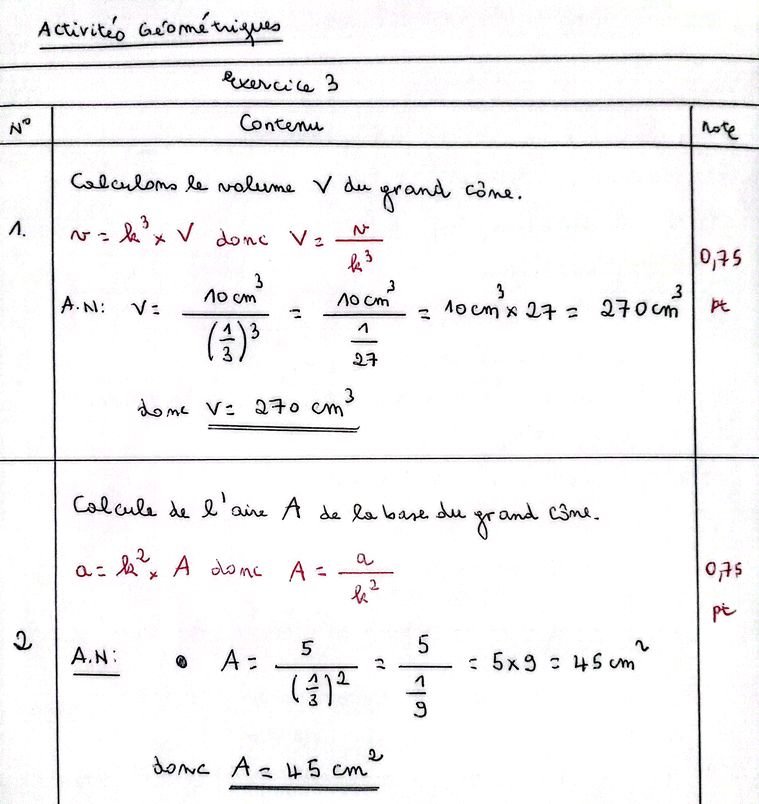 Activités Géométriques
Exercice 3
N° Contenu note
Calculons le volume V du grand cône.
1. v = k³ × V donc V = v/k³ 0,75 pt
A.N: V = 10 cm³/(1/3)³ = 10 cm³/(1/27) = 10 cm³ × 27 = 270 cm³
donc V = 270 cm³
Calcule de l'aire A de la base du grand cône.
a = k² × A donc A = a/k² 0,75 pt
2 A.N: • A = 5/(1/3)² = 5/(1/9) = 5 × 9 = 45 cm²
donc A = 45 cm²